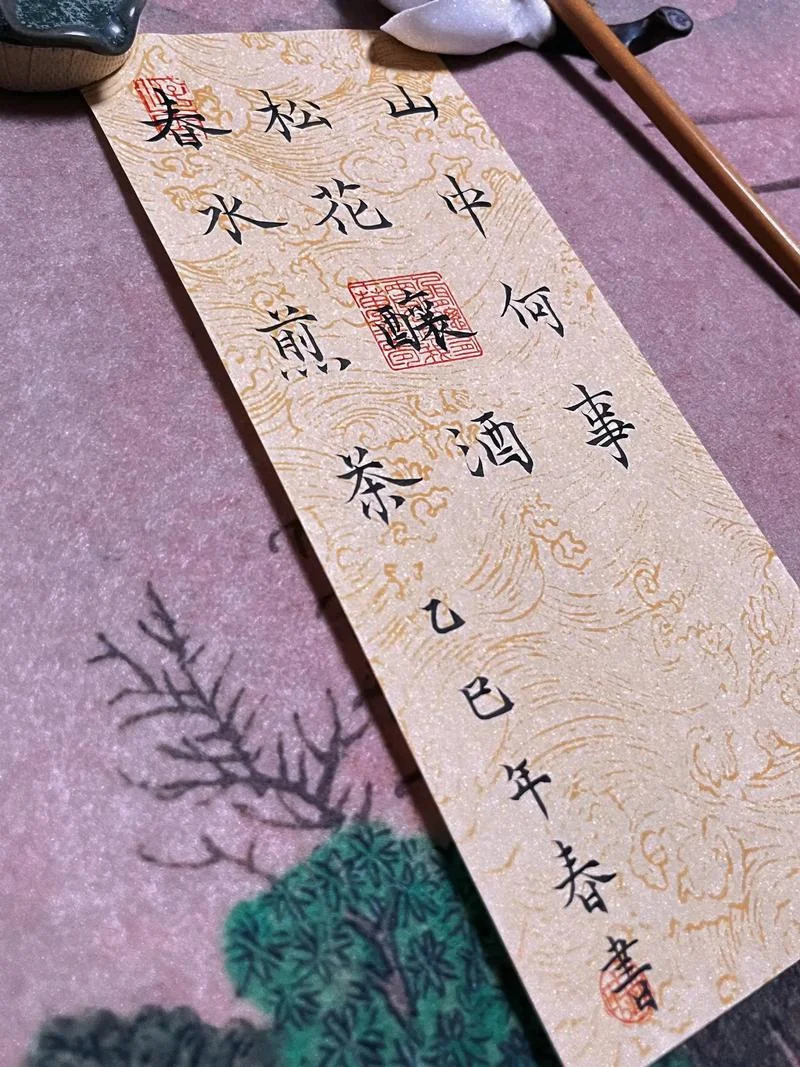 山中何事
松花酿酒
春水煎茶
乙巳年春書